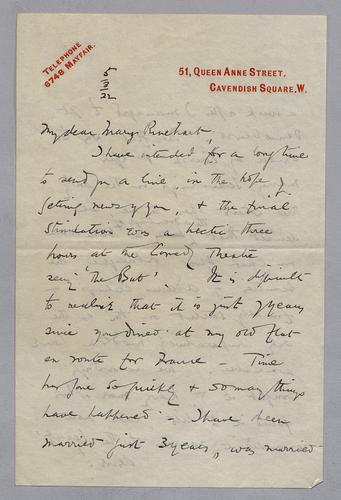 TELEPHONE
6748 MAYFAIR.
51, QUEEN ANNE STREET,
CAVENDISH SQUARE, W.
5
3
22
My dear Mary Rinehart,
I have intended for a long time
to send you a line, in the hope of
getting news of you, & the final
stimulation was a hectic three
hours at the Comedy Theatre
seeing 'The Bat'. It is difficult
to realise that it is just 7 years
since you dined at my old flat
en route for France – Time
has gone so quickly & so many things
have happened – I have been
married just 3 years, was married